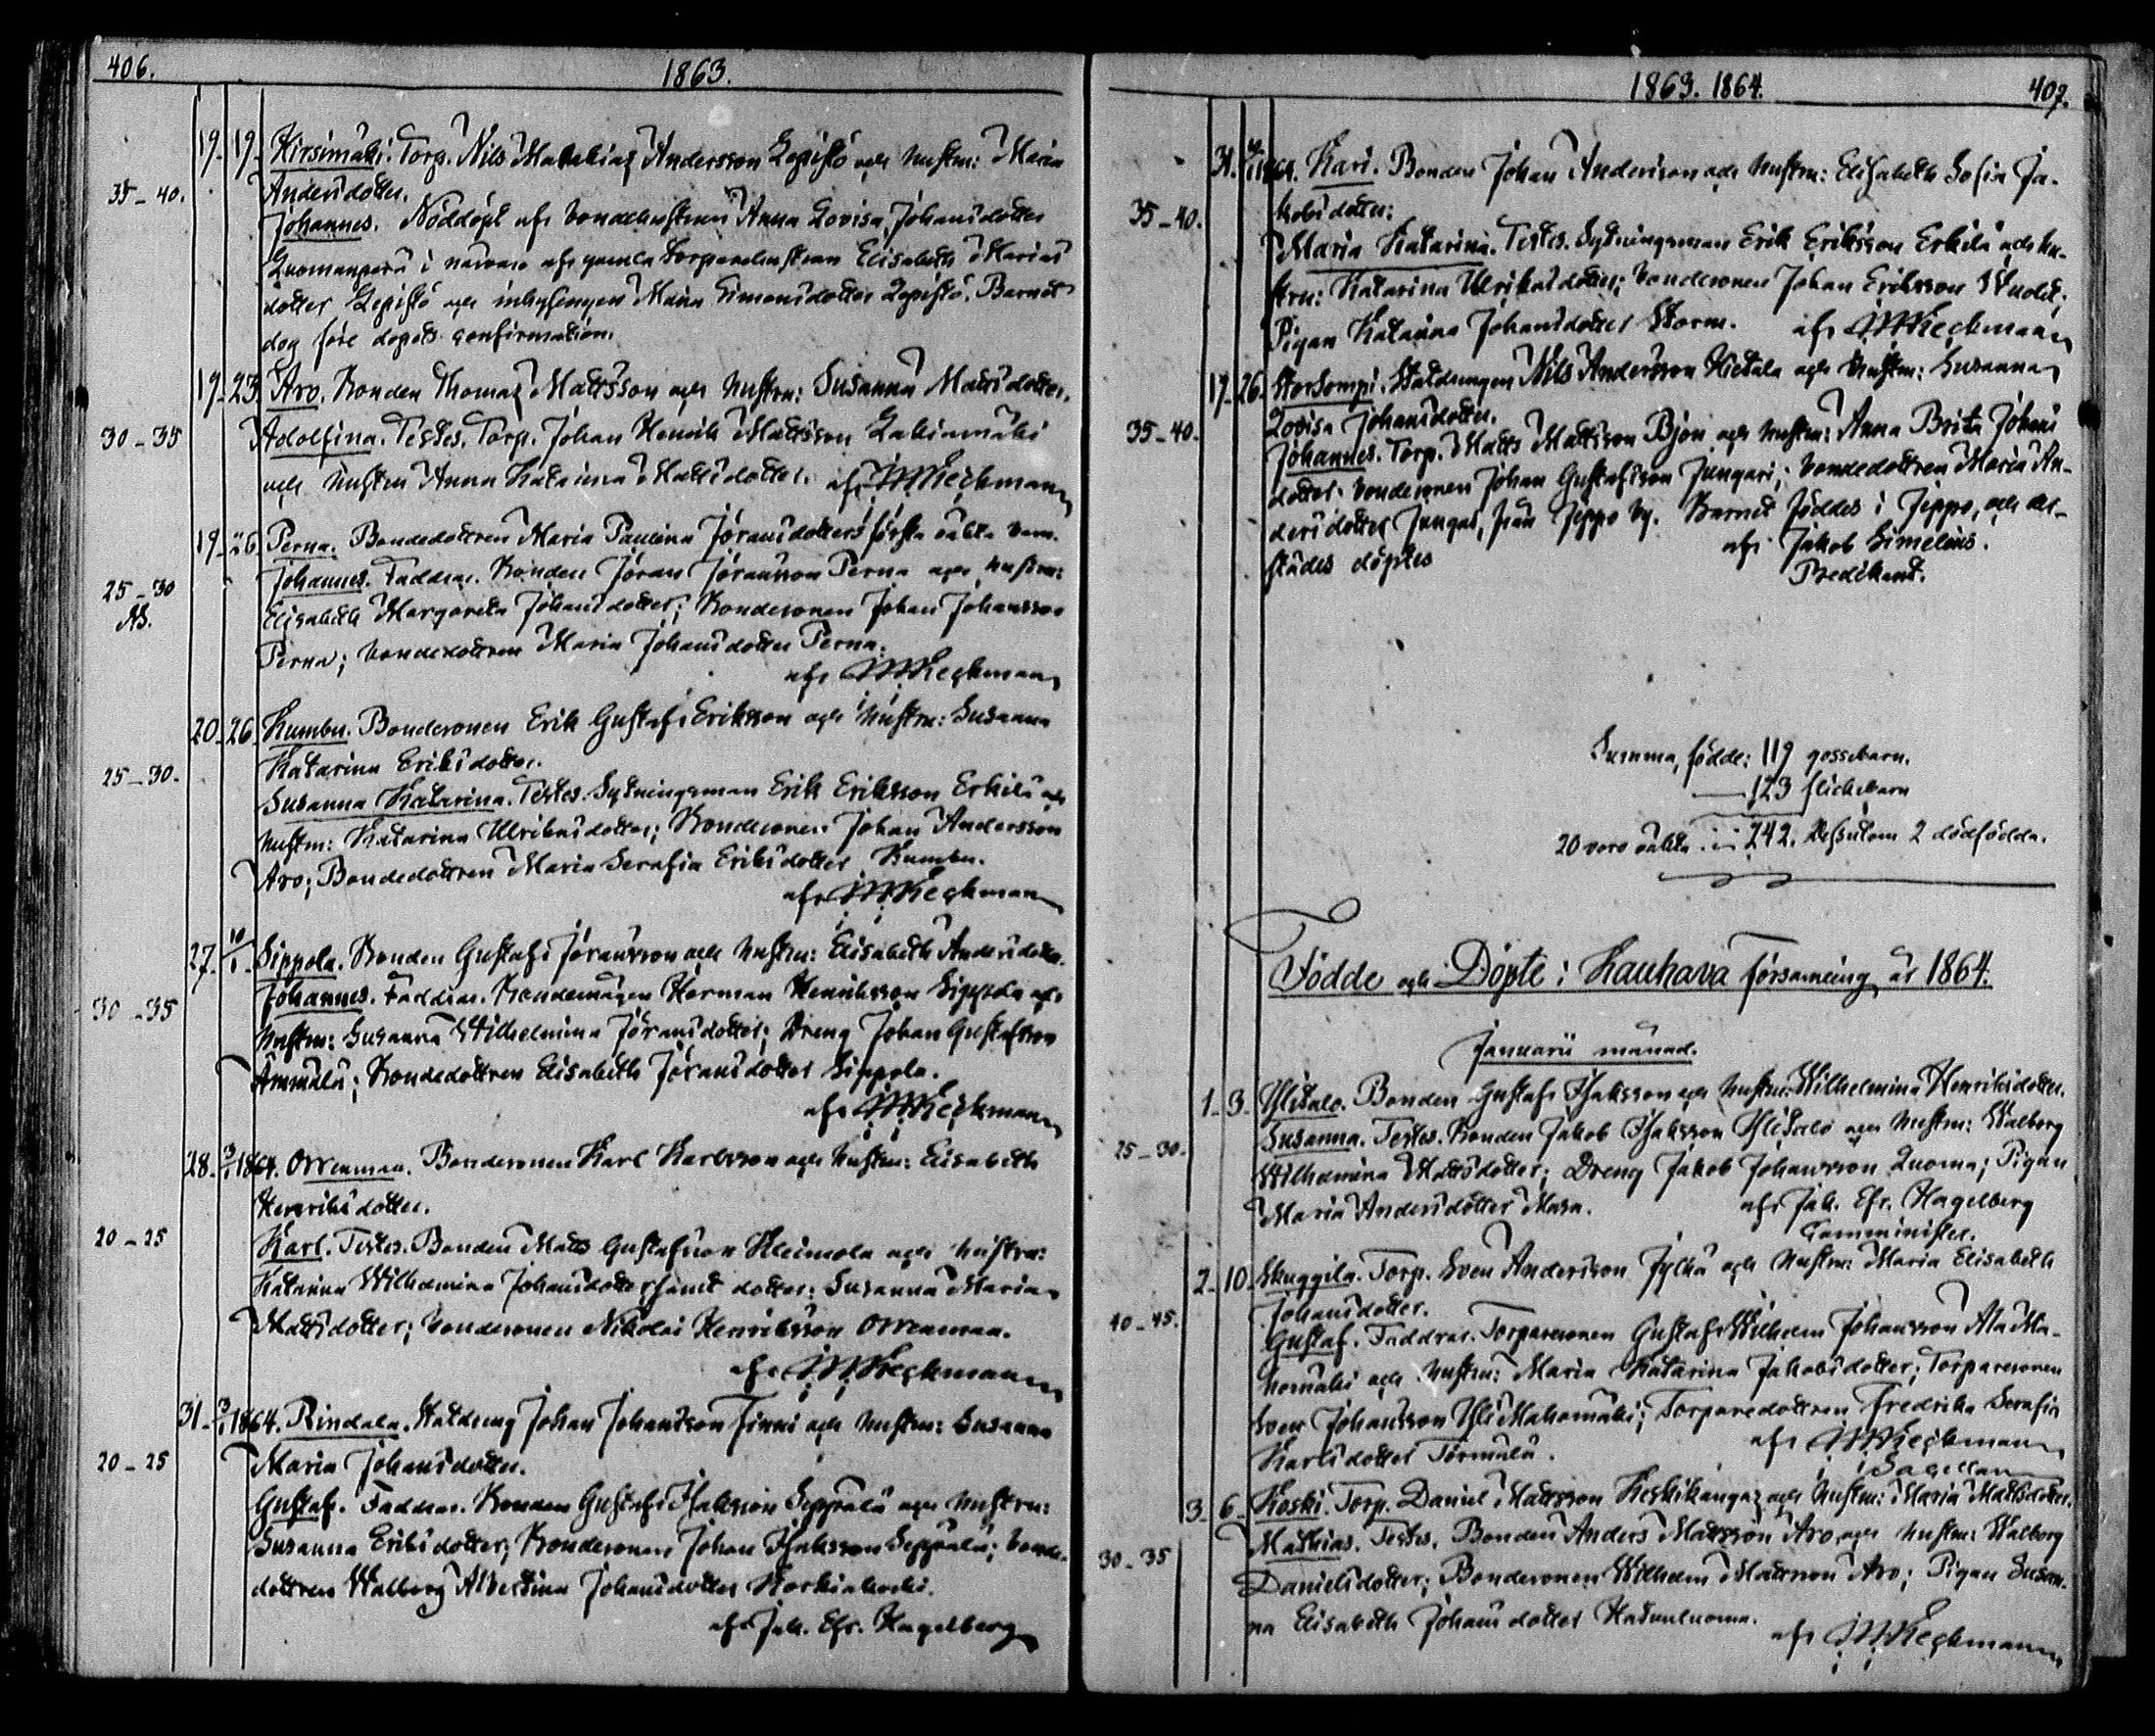 406.
1863.
19. 19. Hirsimäki. Torp. Nils Mathias Andersson Lepistö och hustru: Maria
35–40. Andersdotter.
Johannes. Nöddöpt af bondehustrun Anna Lovisa Johansdotter
Luomanperä i närvaro af gamla torparehustrun Elisabeth Marias
dotter Lepistö och inhysingen Maria Simonsdotter Lepistö. Barnet
dog före dopets confirmation.
19. 23. Aro. Bonden Thomas Mattsson och hustru: Susanna Mattsdotter.
30–35 Adolfina. Testes. Torp. Johan Henrik Mattsson
och hustru Anna Katarina Mattsdotter. af J.W. Keckman
19. 26. Perna. Bondedottren Maria Paulina Jöransdotters första oäkta barn.
Johannes. Faddrar. Bonden Jöran Jöransson Perna och hustru:
25–30
Elisabeth Margareta Johansdotter; Bondesonen Johan Johansson
Perna; bondedottren Maria Johansdotter Perna.
af Keckman
20. 26. Kumbu. Bondesonen Erik Gustaf Eriksson och hustru: Susanna
25–30. Katarina Eriksdotter.
Susanna Katarina. Testes. Sytningsman Erik Eriksson Erkilä och
hustru: Katarina Ulriksdotter; Bondesonen Johan Andersson
Aro; Bondedottren Maria Serafia Eriksdotter Kumbu.
af Keckman
27. 10/1. Sippola. Bonden Gustaf Jöransson och hustru: Elisabeth Andersdotter.
Johannes. Faddrar. Bondemågen Herman Henriksson Sippola och
30–35
hustru: Susanna Wilhelmina Jöransdotter; Dreng Johan Gustafsson
Ammälä; Bondedottren Elisabeth Jöransdotter Sippola.
af Keckman
28. 3/1 1864. Orrenmaa. Bondesonen Karl Karlsson och hustru: Elisabeth
Henriksdotter.
20–25
Karl. Testes. Bonden Matts Gustafsson Kleimola och hustru:
Katarina Wilhelmina Johansdotter samt dotter: Susanna Maria
Mattsdotter; bondesonen Nikolai Henriksson Orrenmaa.
af Keckman
31. 3/1 1864. Rindala. Statdreng Johan Johansson Finni och hustru: Susanna
20–25 Maria Johansdotter.
Gustaf. Faddrar. Bonden Gustaf Isaksson Seppälä och hustru:
Susanna Eriksdotter; Bondesonen Johan Isaksson Seppälä; bonde-
dottren Walborg Albertina Johansdotter
af Jak. Efr. Hagelberg
1863. 1864.
407.
31. 1864. Kari. Bonden Johan Andersson och hustru: Elisabeth Sofia Ja-
35–40. kobsdotter:
Maria Katarina. Testes. Sytningsman Erik Eriksson Erkilä och hu-
stru: Katarina Ulriksdotter; bondesonen Johan Eriksson
Pigan Katarina Johansdotter Storm. af Keckman
17. 26. Storsompi. Statdrengen Nils Andersson Hietala och hustru: Susanna
35–40. Lovisa Johansdotter.
Johannes. Torp. Matts Mattsson Björn och hustru: Anna Brita Johans
dotter. bondesonen Johan Gustafsson Jungari; bondedottren Maria An-
dersdotter Jungar, från Jeppo by. Barnet föddes i Jeppo, och der-
städes döptes af Jakob Simelius.
Predikant.
Summa, födde: 119 gossebarn.
123 flickebarn
20 voro oäkta 242. dessutom 2 dödfödda.
Födde och Döpte i Kauhava församling år 1864.
Januarii månad.
1. 3. Ylitalo. Bonden Gustaf Isaksson och hustru: Wilhelmina Henriksdotter.
Susanna. Testes. Bonden Jakob Isaksson Ylitalo och hustru: Walborg
25–30.
Wilhelmina Mattsdotter; Dreng Jakob Johansson Luoma; Pigan
Maria Andersdotter Masa. af Jak. Efr. Hagelberg
Comminister.
2. 10. Skuggila. Torp. Sven Andersson Jylhä och hustru: Maria Elisabeth
40–45. Johansdotter.
Gustaf. Faddrar. Torparesonen Gustaf Wilhelm Johansson Ala Ma-
homäki och hustru: Maria Katarina Jakobsdotter; Torparesonen
Sven Johansson Yli Mahomäki; Torparedottren Fredrika Serafia
Karlsdotter Törmälä. af Keckman
Sacellan
3. 6. Koski. Torp. Daniel Mattsson Koskikangas och hustru: Maria Mattsdotter.
Mathias. Testes. Bonden Anders Mattsson Aro och hustru Walborg
30–35
Danielsdotter; Bondesonen Wilhelm Mattsson Aro; Pigan Susan-
na Elisabeth Johansdotter
af Keckman